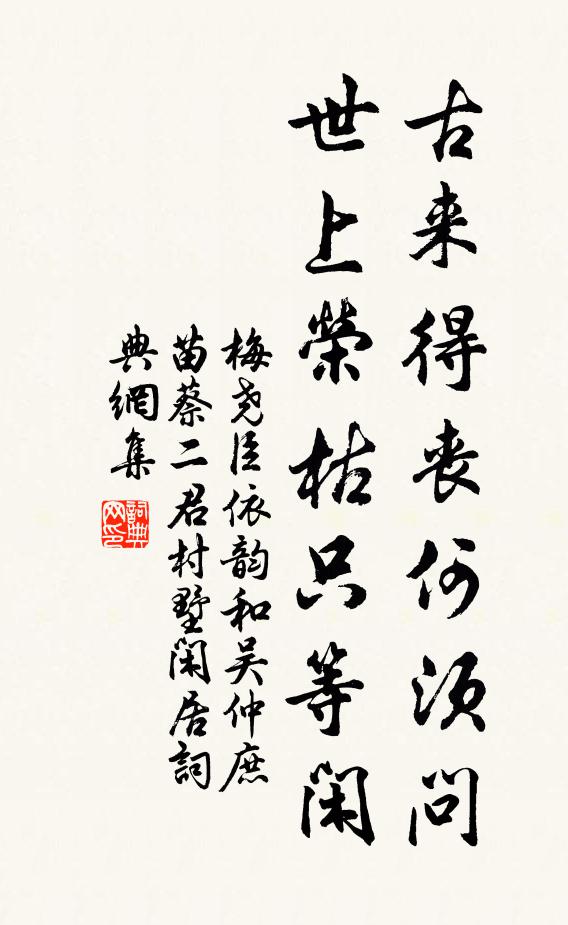 古来得丧何须問
世上榮枯只等闲
梅尧臣依韵和吴仲庶
苗蔡二君村墅闲居詞
典網集
詞典
网印